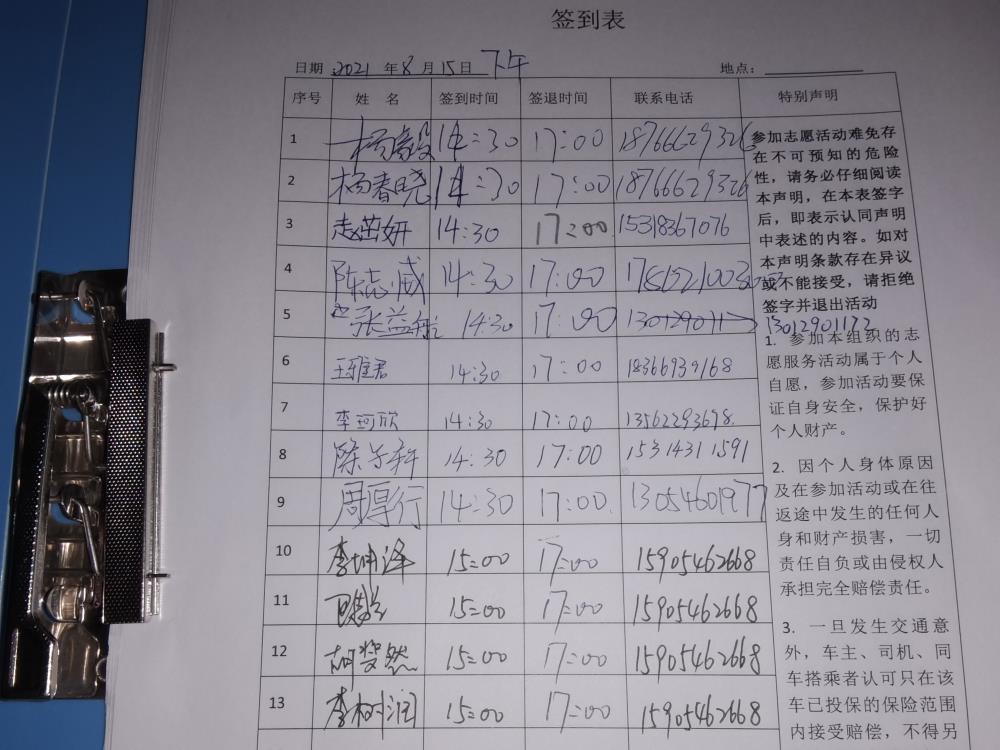 签到表
日期:2021 年 8 月 15 日 下午 地点:
序号 姓 名 签到时间 签退时间 联系电话 特别声明
1 14:30 17:00 18766629326
2 杨春晓 14:30 17:00 18766629326
3 赵茁妍 14:30 17:00 15318367076
4 陈志威 14:30 17:00
5 张益航 14:30 17:00 13012901172
6 王雅君 14:30 17:00 18366939168
7 李珂欣 14:30 17:00 13562293698
8 陈子科 14:30 17:00 15314311591
9 周厚行 14:30 17:00 13054601977
10 李坤泽 15:00 17:00 15905462668
11 15:00 17:00 15905462668
12 胡斐然 15:00 17:00 15905462668
13 李树润 15:00 17:00 15905462668
参加志愿活动难免存
在不可预知的危险
性,请务必仔细阅读
本声明,在本表签字
后,即表示认同声明
中表述的内容。如对
本声明条款存在异议
或不能接受,请拒绝
签字并退出活动
1. 参加本组织的志
愿服务活动属于个人
自愿,参加活动要保
证自身安全,保护好
个人财产。
2. 因个人身体原因
及在参加活动或在往
返途中发生的任何人
身和财产损害,一切
责任自负或由侵权人
承担完全赔偿责任。
3. 一旦发生交通意
外,车主、司机、同
车搭乘者认可只在该
车已投保的保险范围
内接受赔偿,不得另